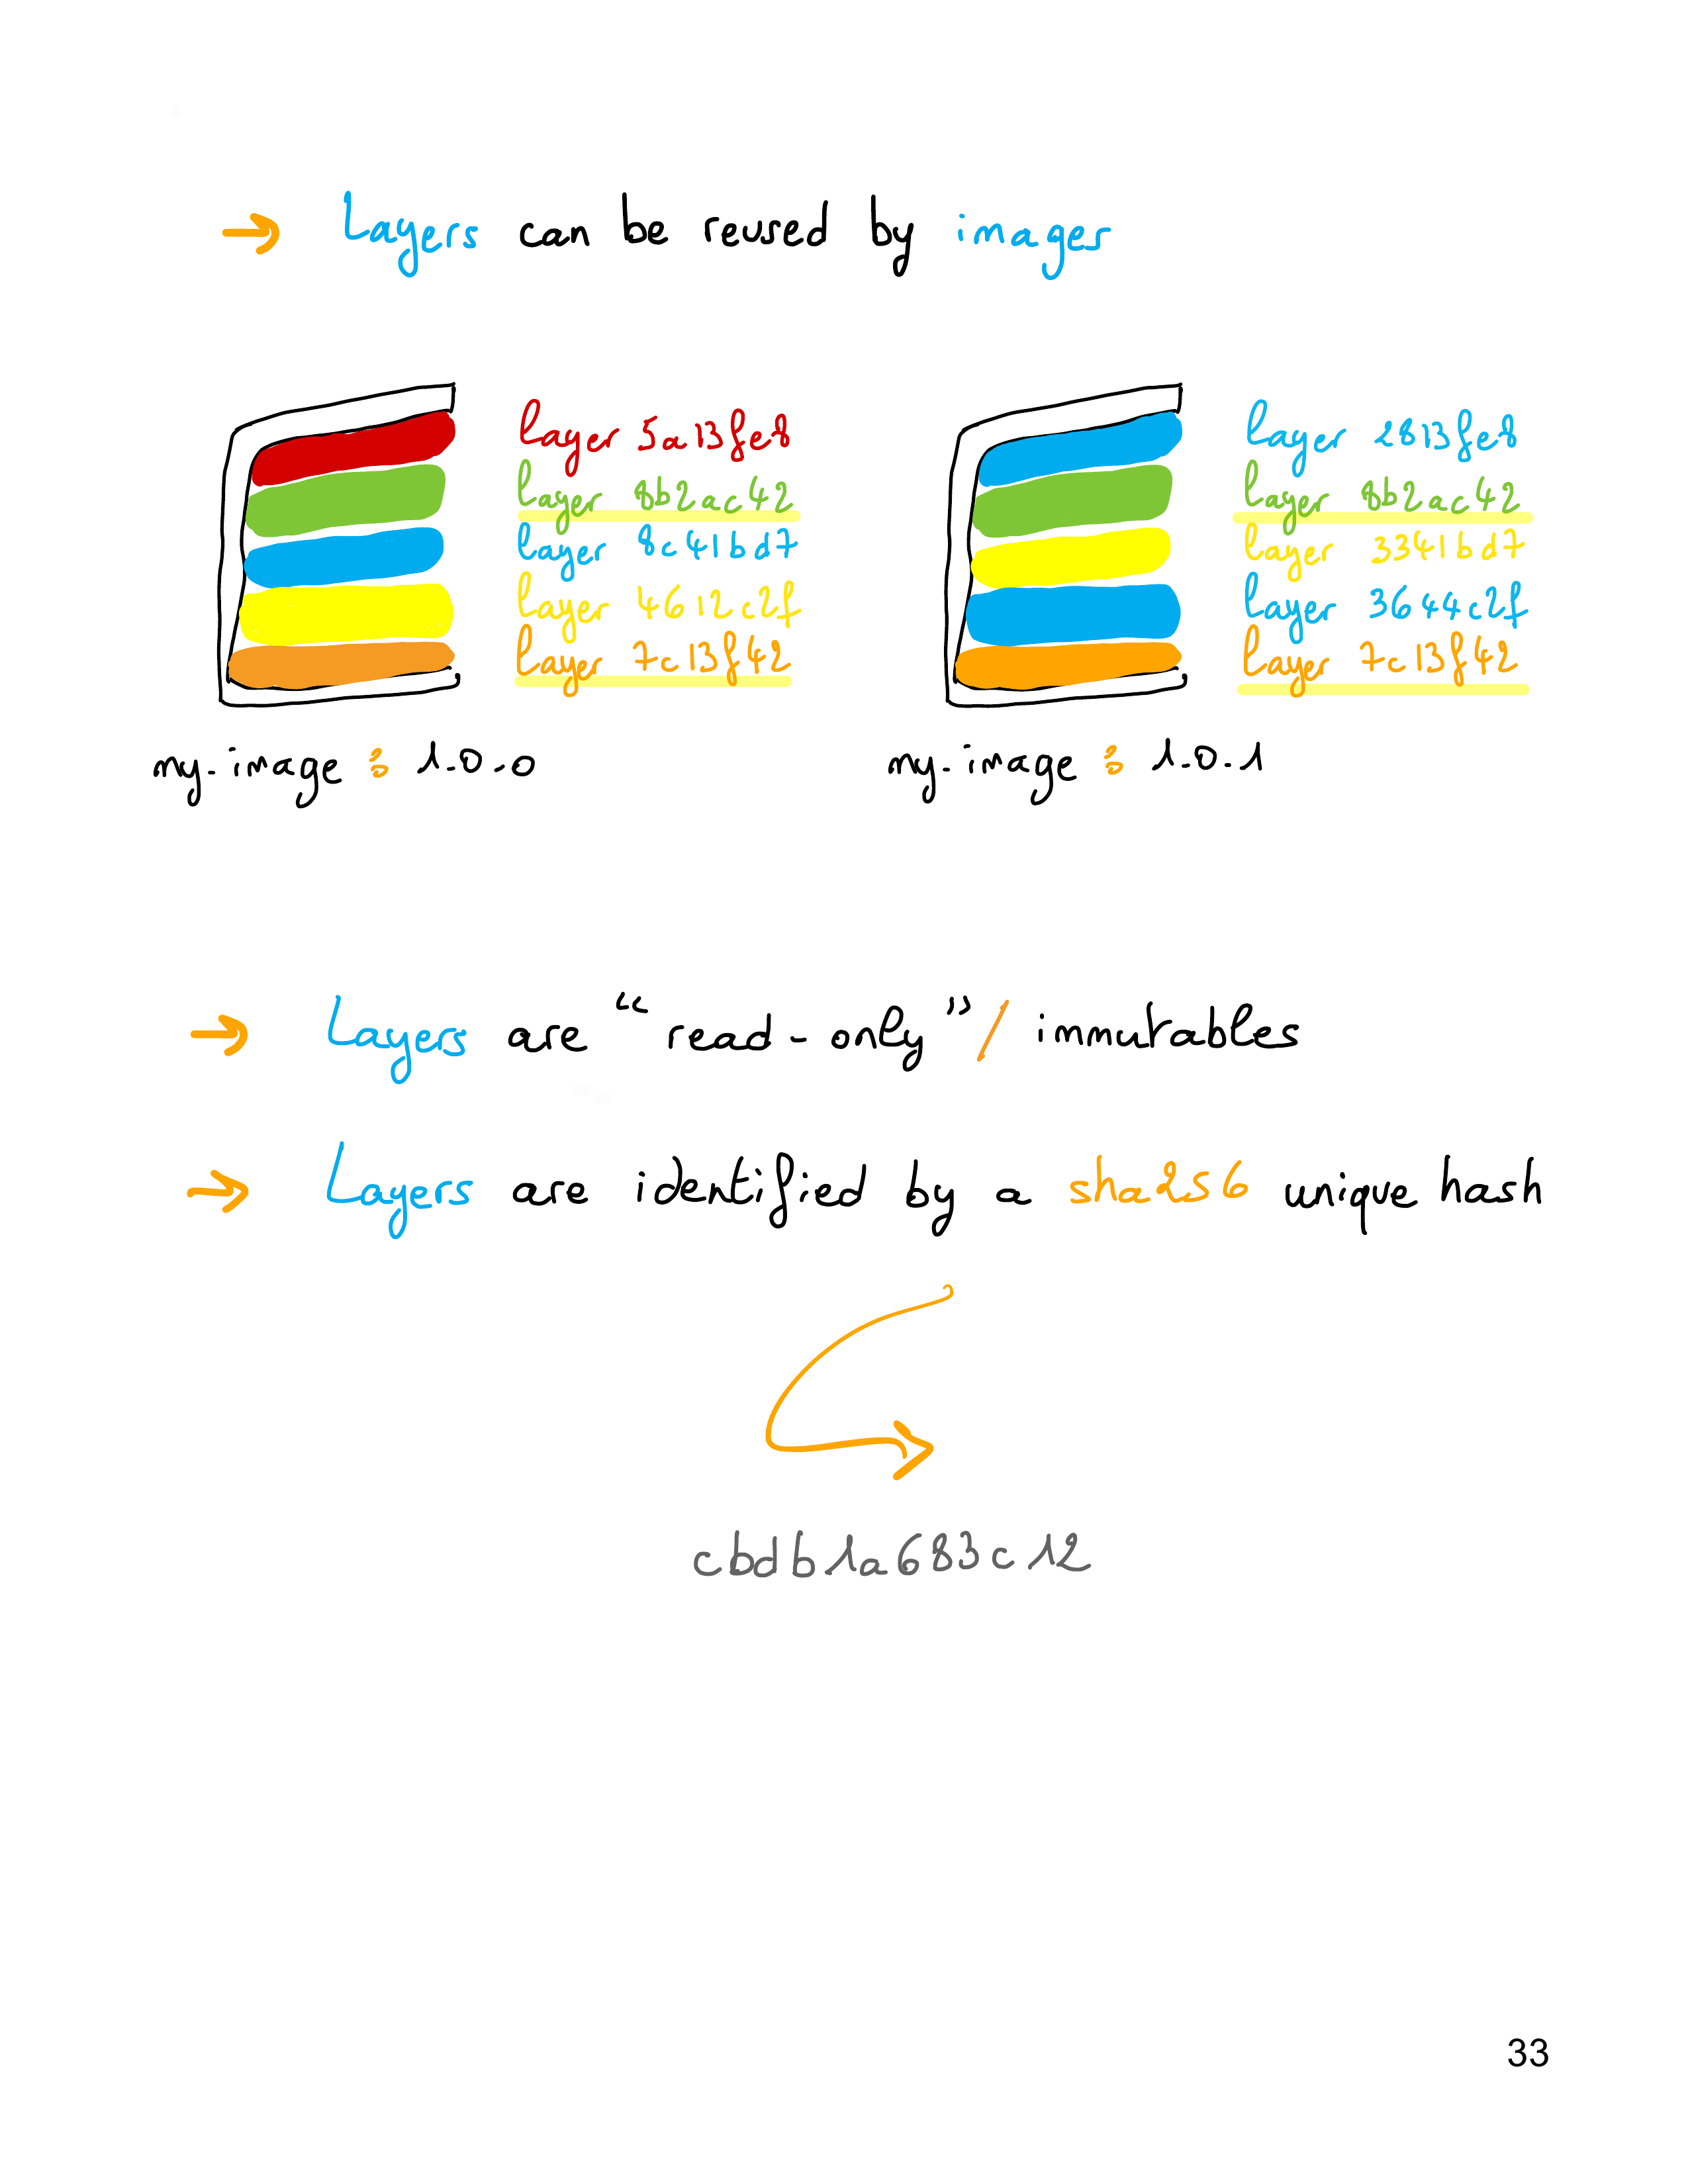 → Layers can be reused by images
layer 5a13fe8
layer 8b2ac42
layer 8c41bd7
layer 4612c2f
layer 7c13f42
my-image : 1.0.0
layer 2813fe8
layer 8b2ac42
layer 3341bd7
layer 3644c2f
layer 7c13f42
my-image : 1.0.1
→ Layers are "read-only" / immutables
→ Layers are identified by a sha256 unique hash
cbdb1a683c12
33